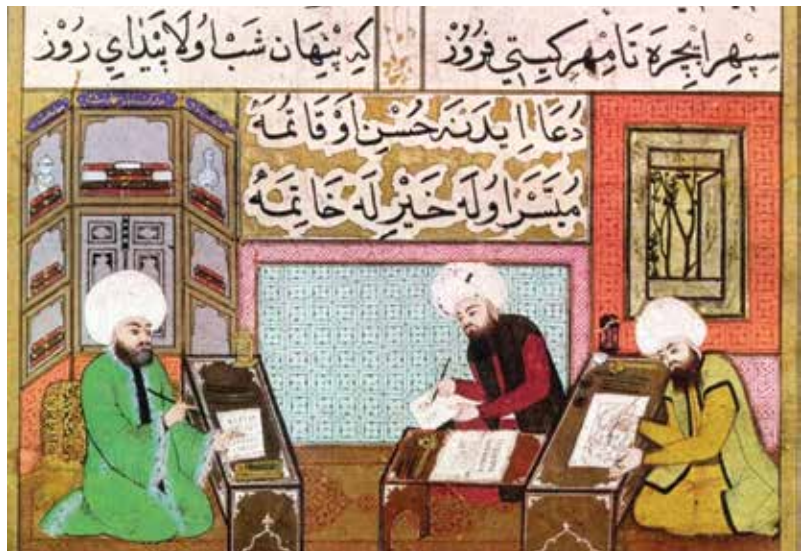 سپهر ایچره تا مهر كیتی فروز
كه پنهان شب اولا پیدای روز
دعا ایدنه حسن اوقاتمه
میسر اوله خیر له خاتمه